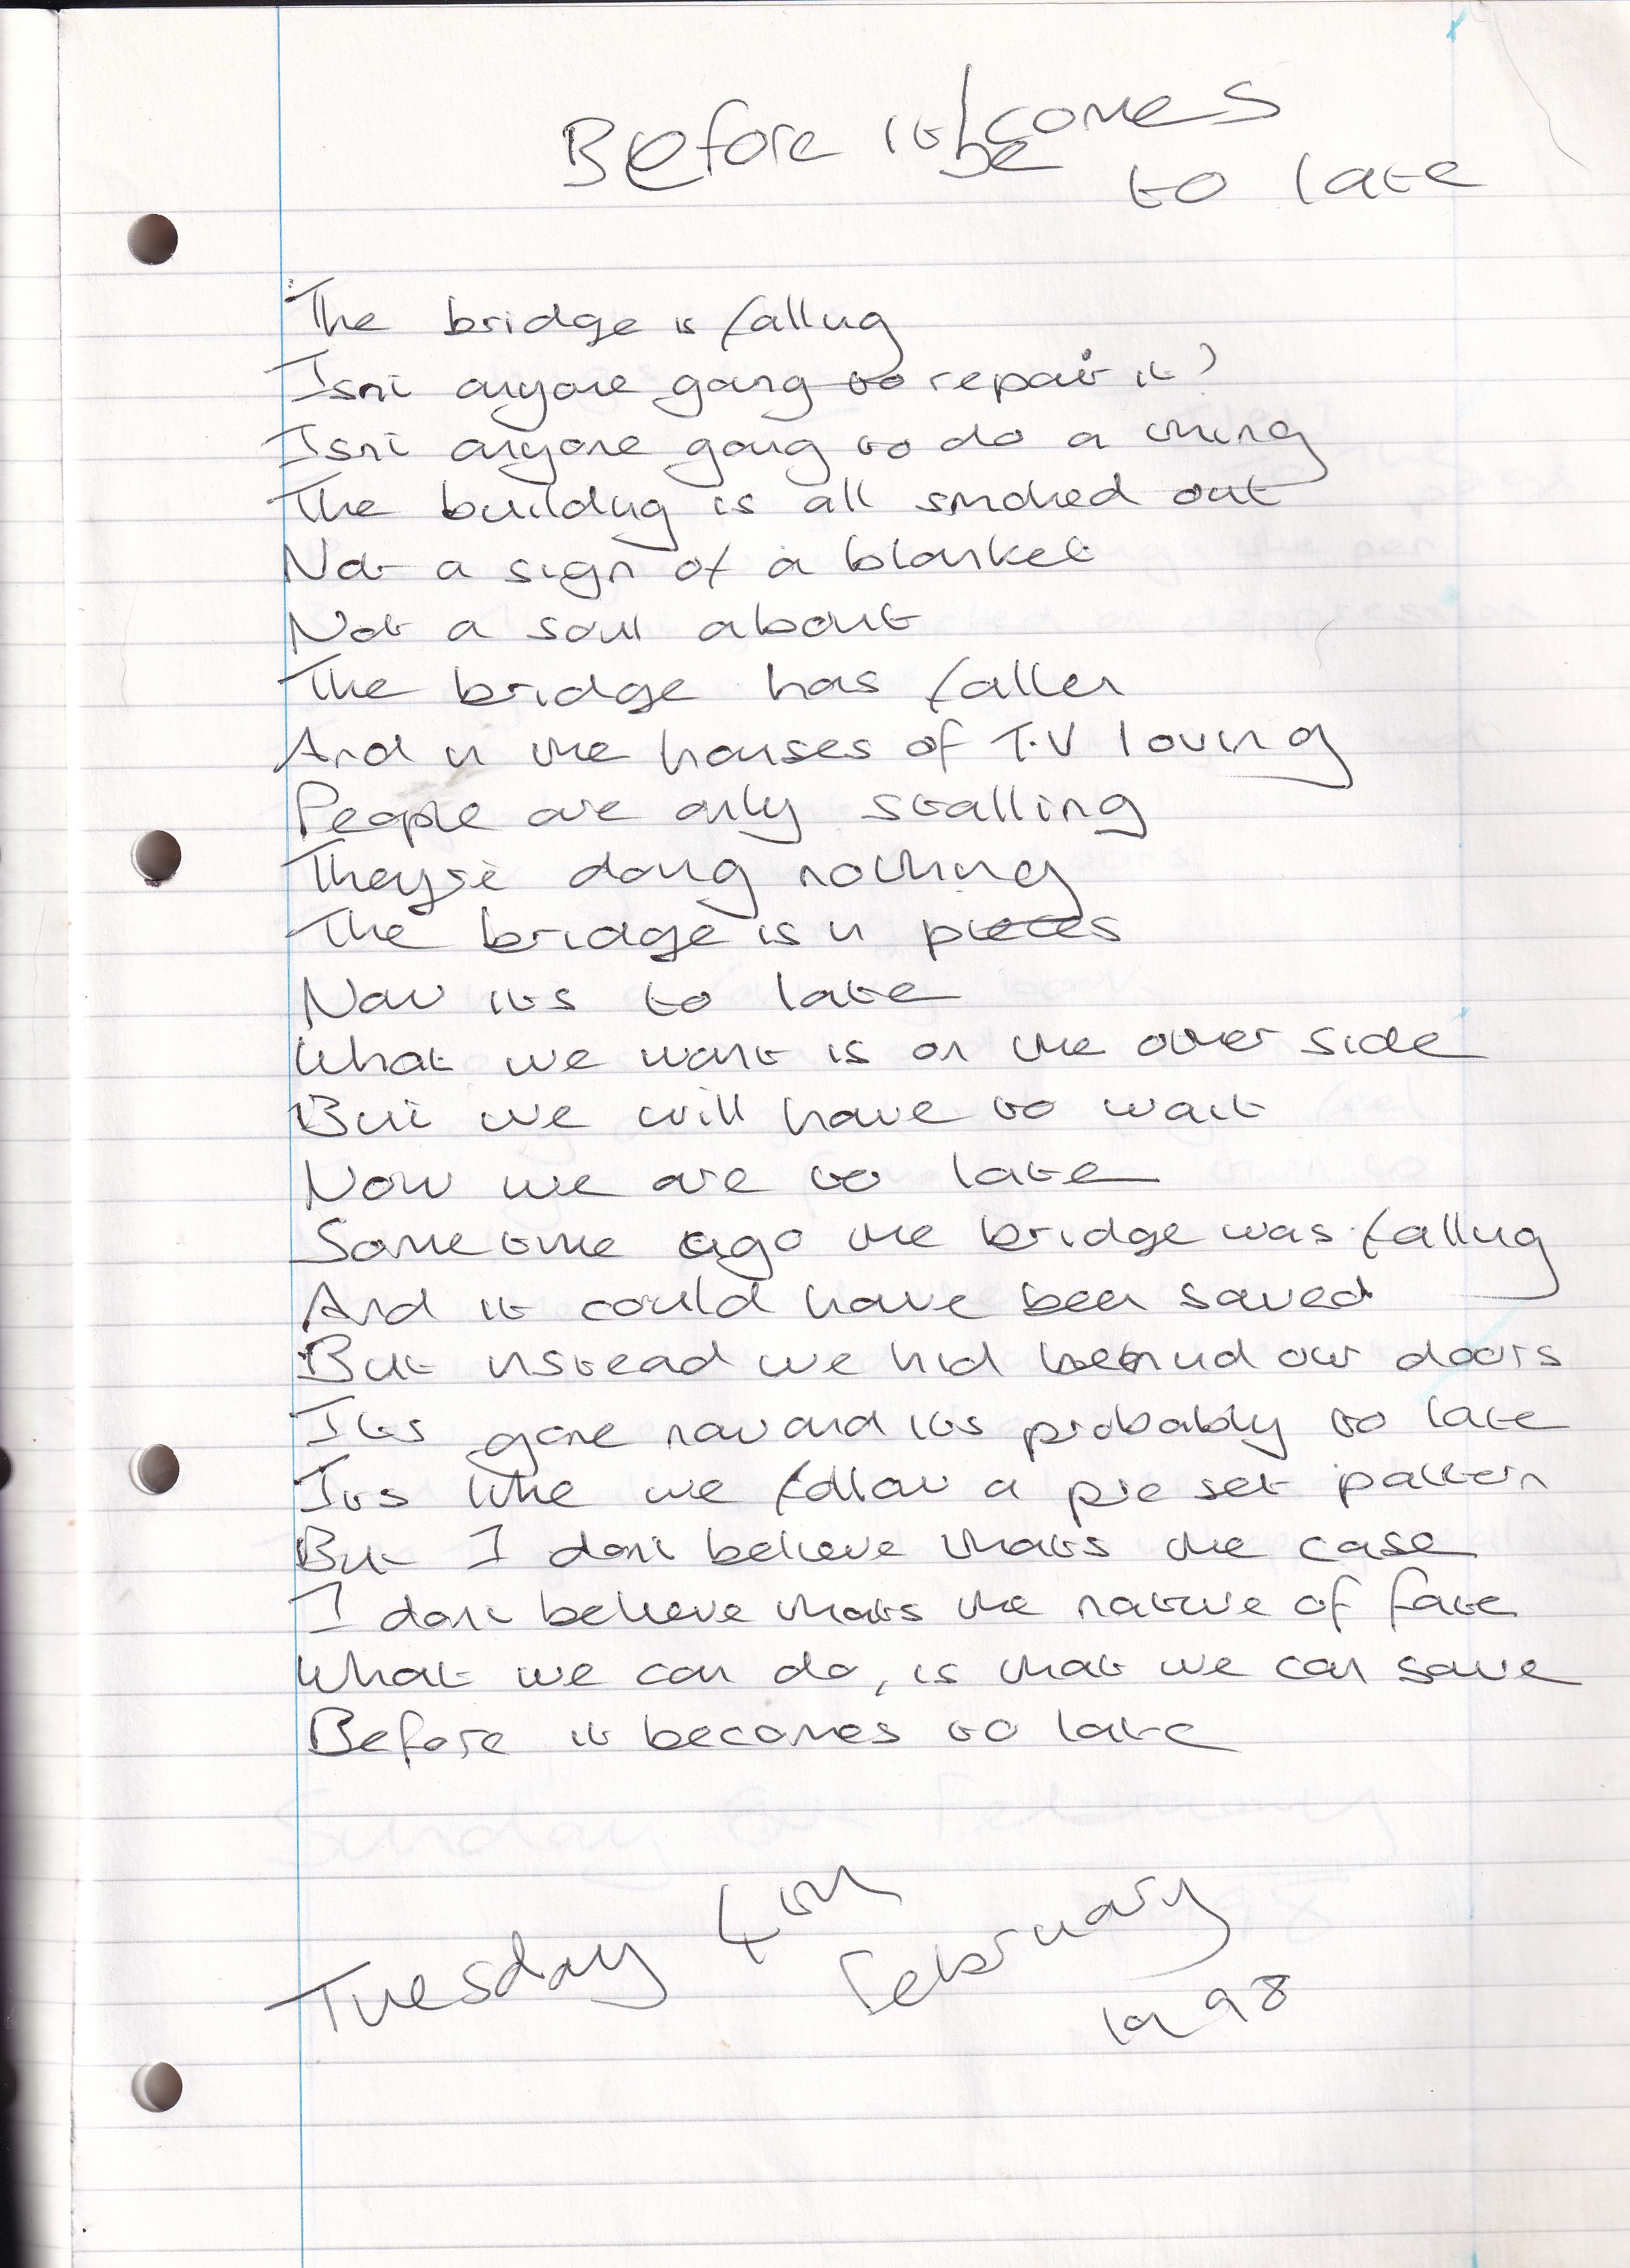 Before it becomes
to late
The bridge is falling
Isnt anyone going to repair it?
Isnt anyone going to do a thing
The building is all smoked out
Not a sign of a blanket
Not a soul about
The bridge has fallen
And in the houses of T.V loving
People are only stalling
They're doing nothing
The bridge is in pieces
Now its to late
What we want is on the other side
But we will have to wait
Now we are to late
Some time ago the bridge was falling
And it could have been saved
But instead we hid behind our doors
Its gone now and its probably to late
Its like we follow a pre set pattern
But I dont believe thats the case
I dont believe thats the nature of fate
What we can do, is that we can save
Before it becomes to late
Tuesday 4th
February
1998